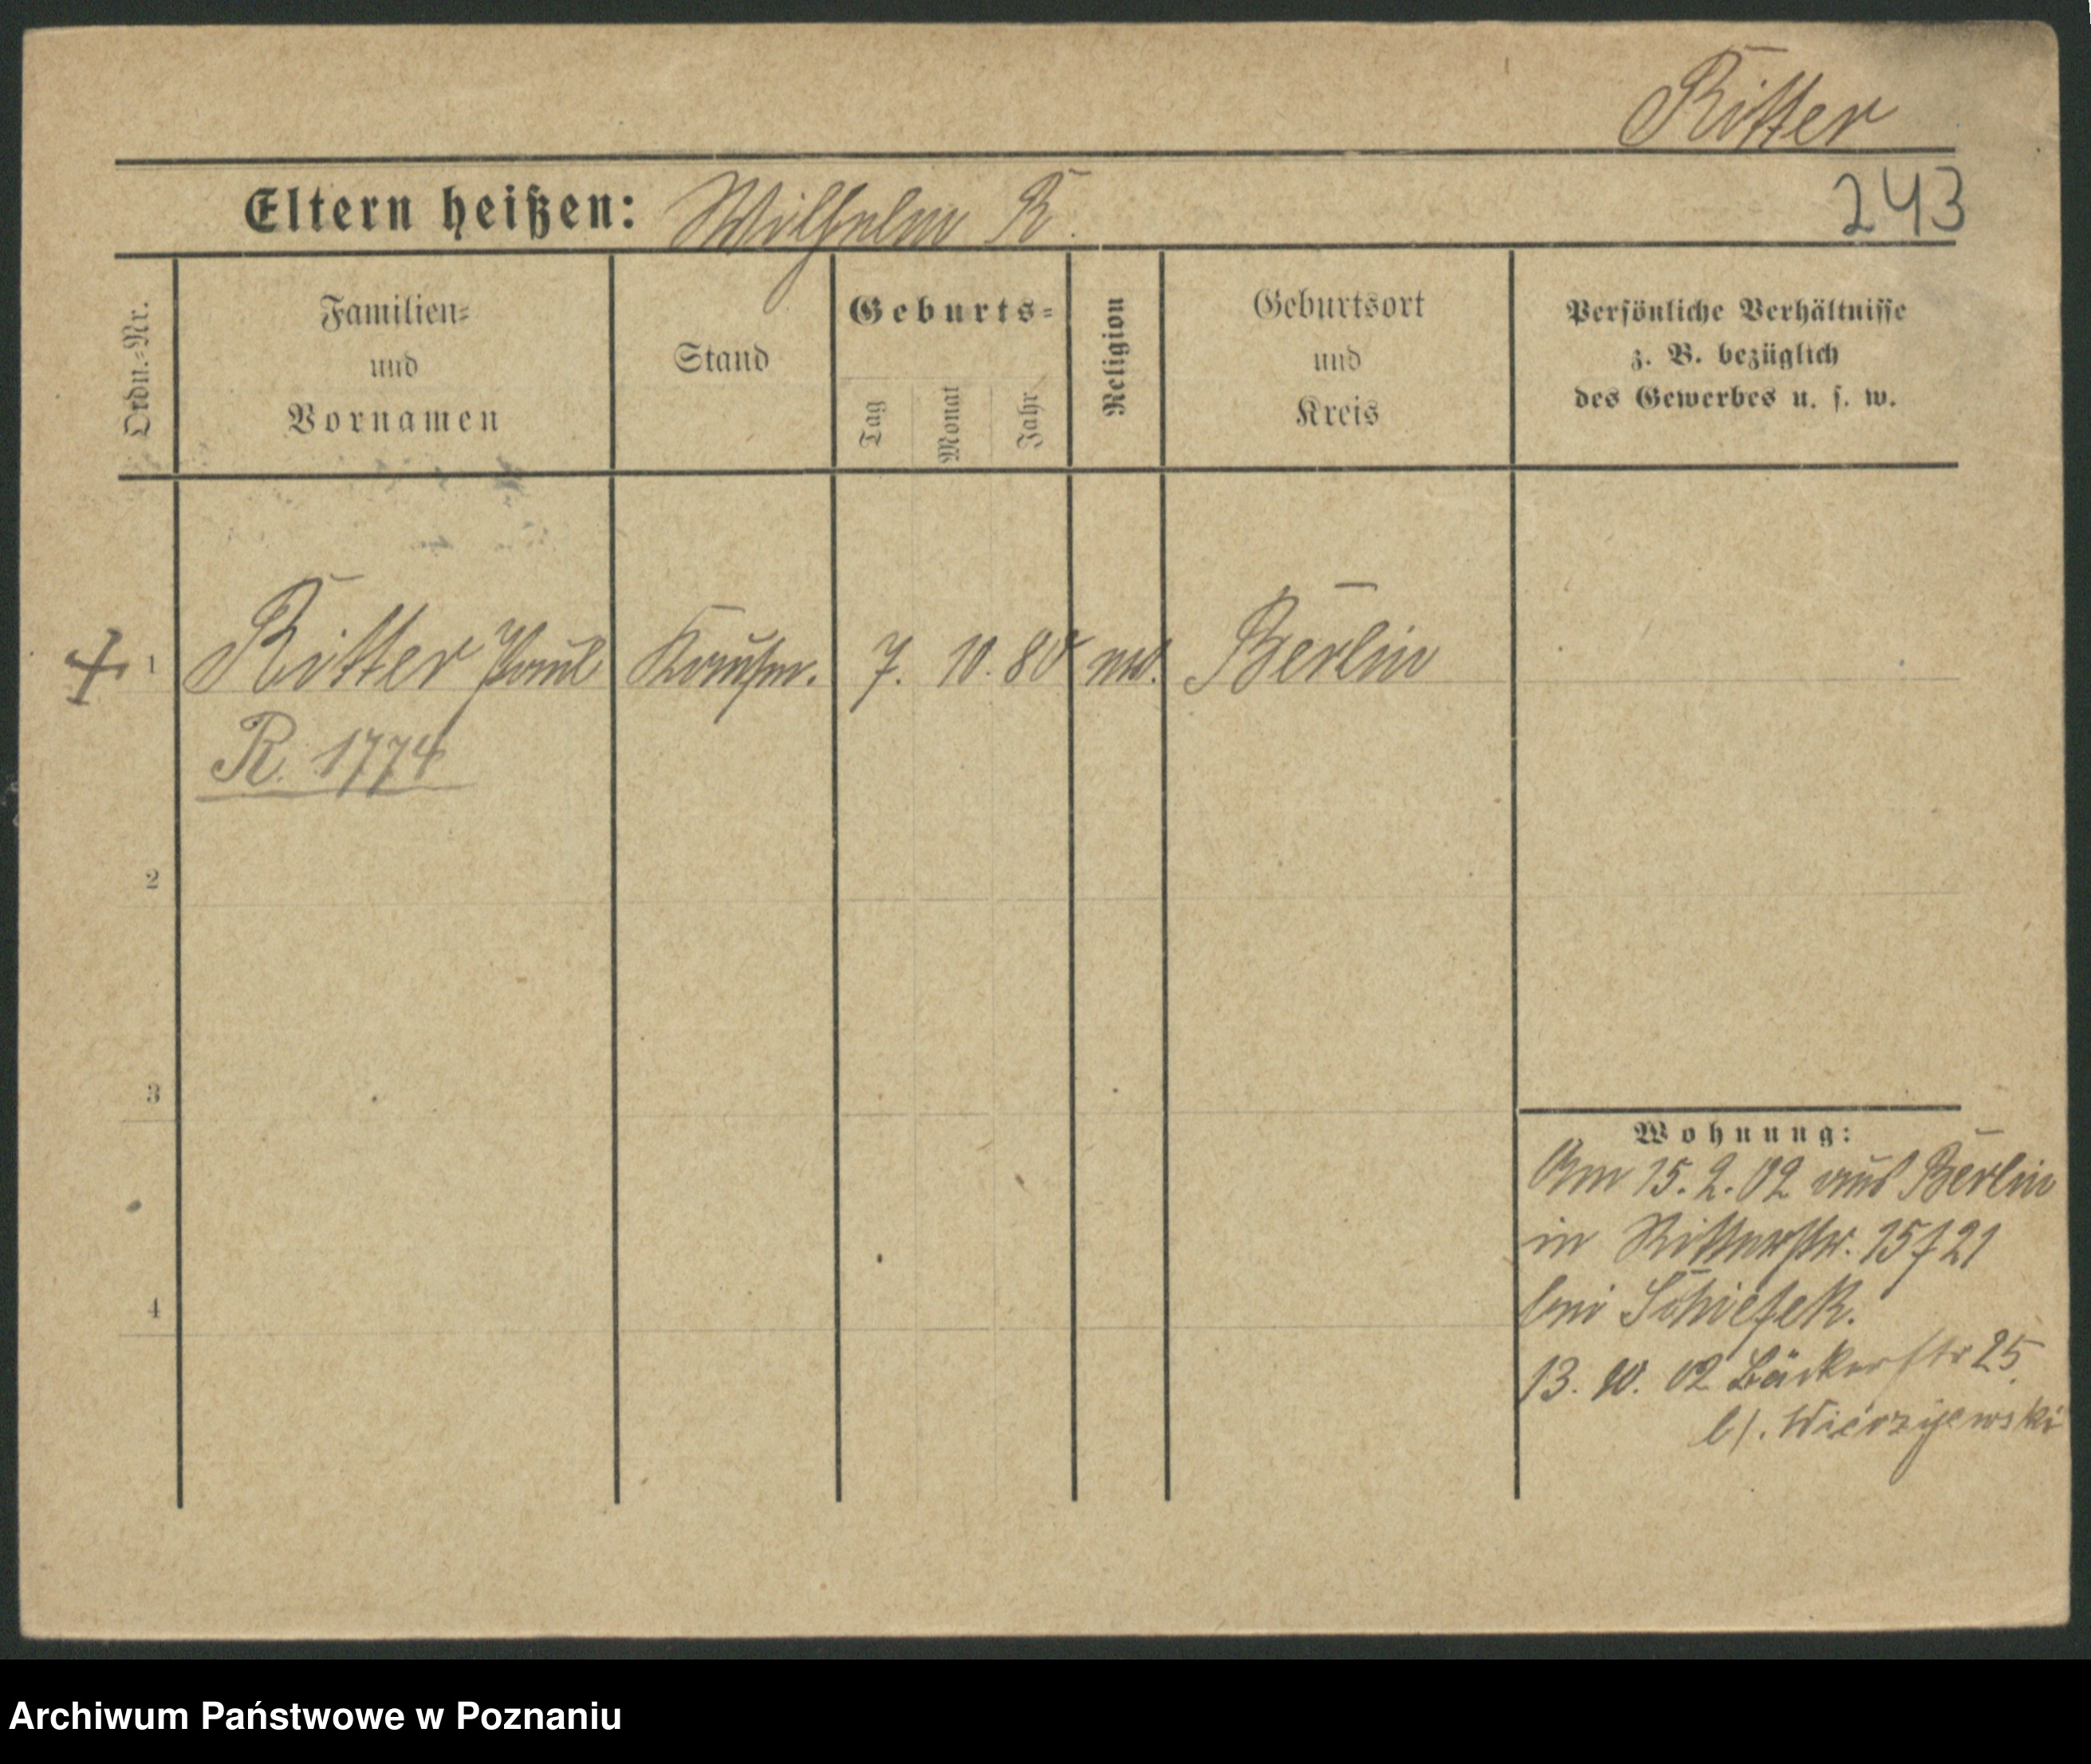 Ritter
243
Eltern heißen: Wilhelm R.
Ordn.-Nr.
Familien-
und
Vornamen
Stand
Geburts-
Tag
Monat
Jahr
Religion
Geburtsort
und
Kreis
Persönliche Verhältnisse
z. B. bezüglich
des Gewerbes u. s. w.
1 Ritter Paul Kaufm. 7. 10. 80 Berlin
R. 1774
2
3
4
Wohnung:
Am 15. 2. 02 aus Berlin
in Ritterstr. 15
bei
13. 10. 02 Bäckerstr 25.
b/. Wierzyewski
Archiwum Państwowe w Poznaniu